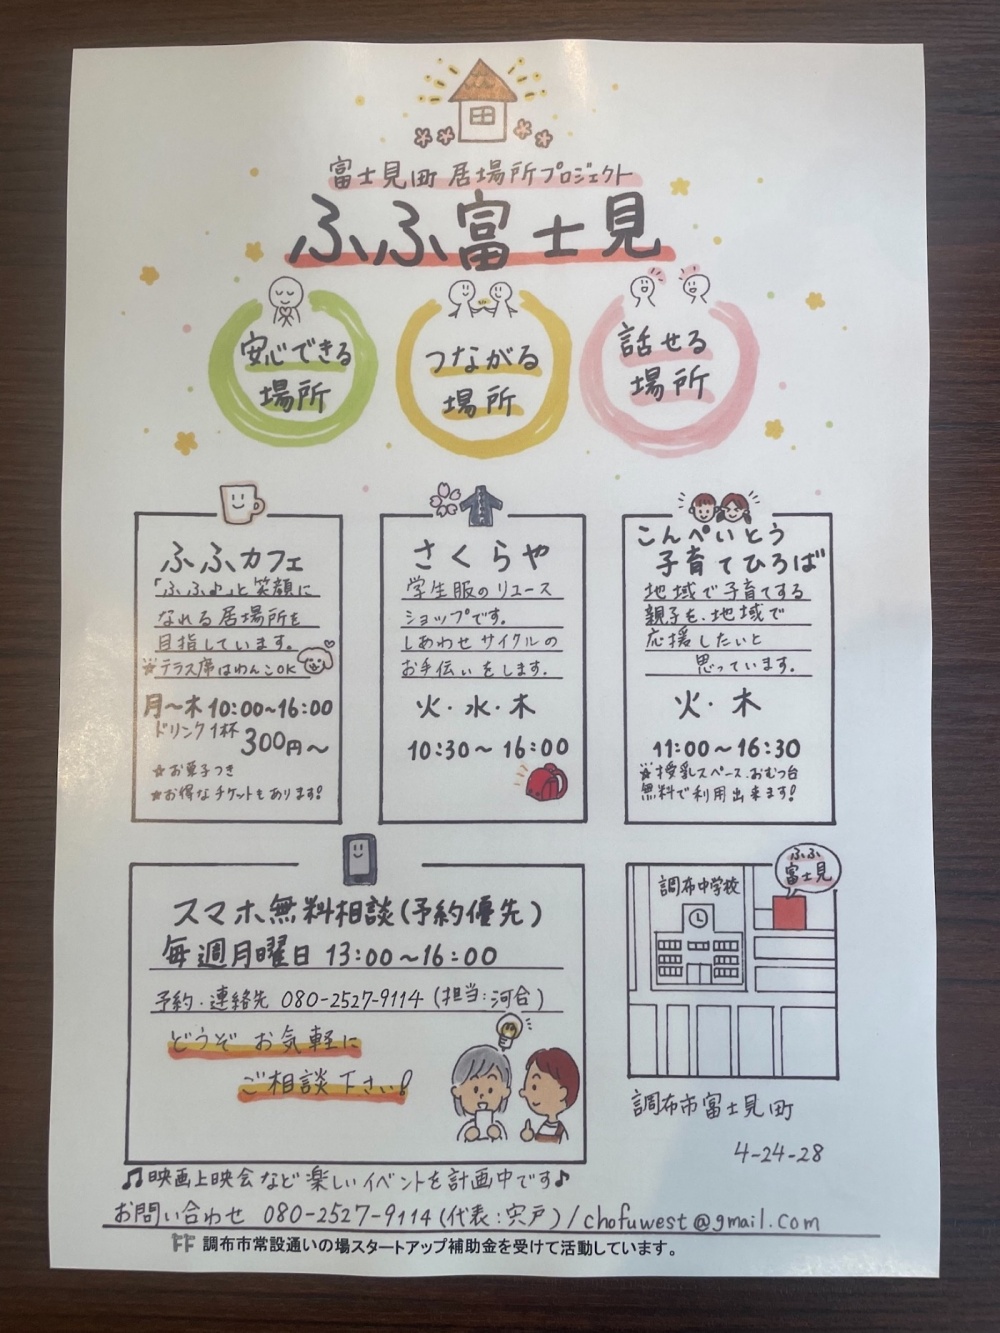 富士見町 居場所プロジェクト
ふふ富士見
安心できる
場所
つながる
場所
話せる
場所
ふふカフェ
「ふふふ♪」と笑顔に
なれる居場所を
目指しています。
★テラス席はわんこOK
月〜木 10:00〜16:00
ドリンク1杯
300円〜
★お菓子つき
★お得なチケットもあります!
さくらや
学生服のリユース
ショップです。
しあわせサイクルの
お手伝いをします。
火・水・木
10:30〜16:00
こんぺいとう
子育てひろば
地域で子育てする
親子を、地域で
応援したいと
思っています。
火・木
11:00〜16:30
★授乳スペース、おむつ台
無料で利用出来ます!
スマホ無料相談(予約優先)
毎週月曜日 13:00〜16:00
予約・連絡先 080-2527-9114 (担当:河合)
どうぞ お気軽に
ご相談下さい!
調布中学校
ふふ
富士見
調布市富士見町
4-24-28
♫映画上映会など楽しいイベントを計画中です♪
お問い合わせ 080-2527-9114 (代表:宍戸) / chofuwest@gmail.com
調布市常設通いの場スタートアップ補助金を受けて活動しています。